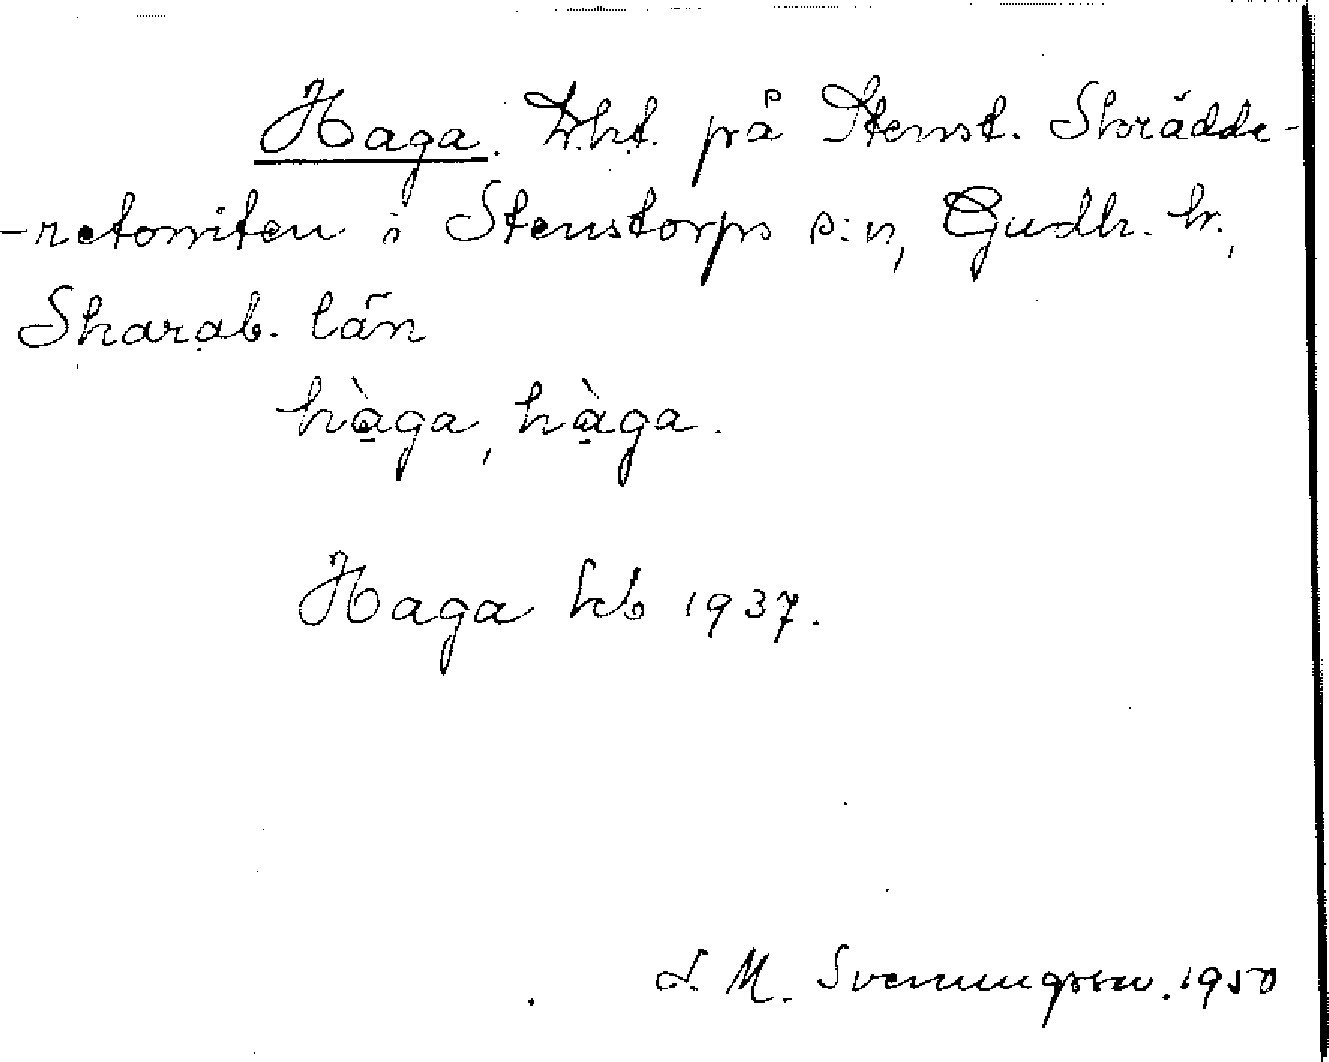 Haga. Lht. på Stenst. Skrädde-
-retomten i Stenstorps s:n, Gudh. hr.,
Skarab. län
hàga, hàga.
Haga kb 1937.
S. M. Svenungsson. 1950